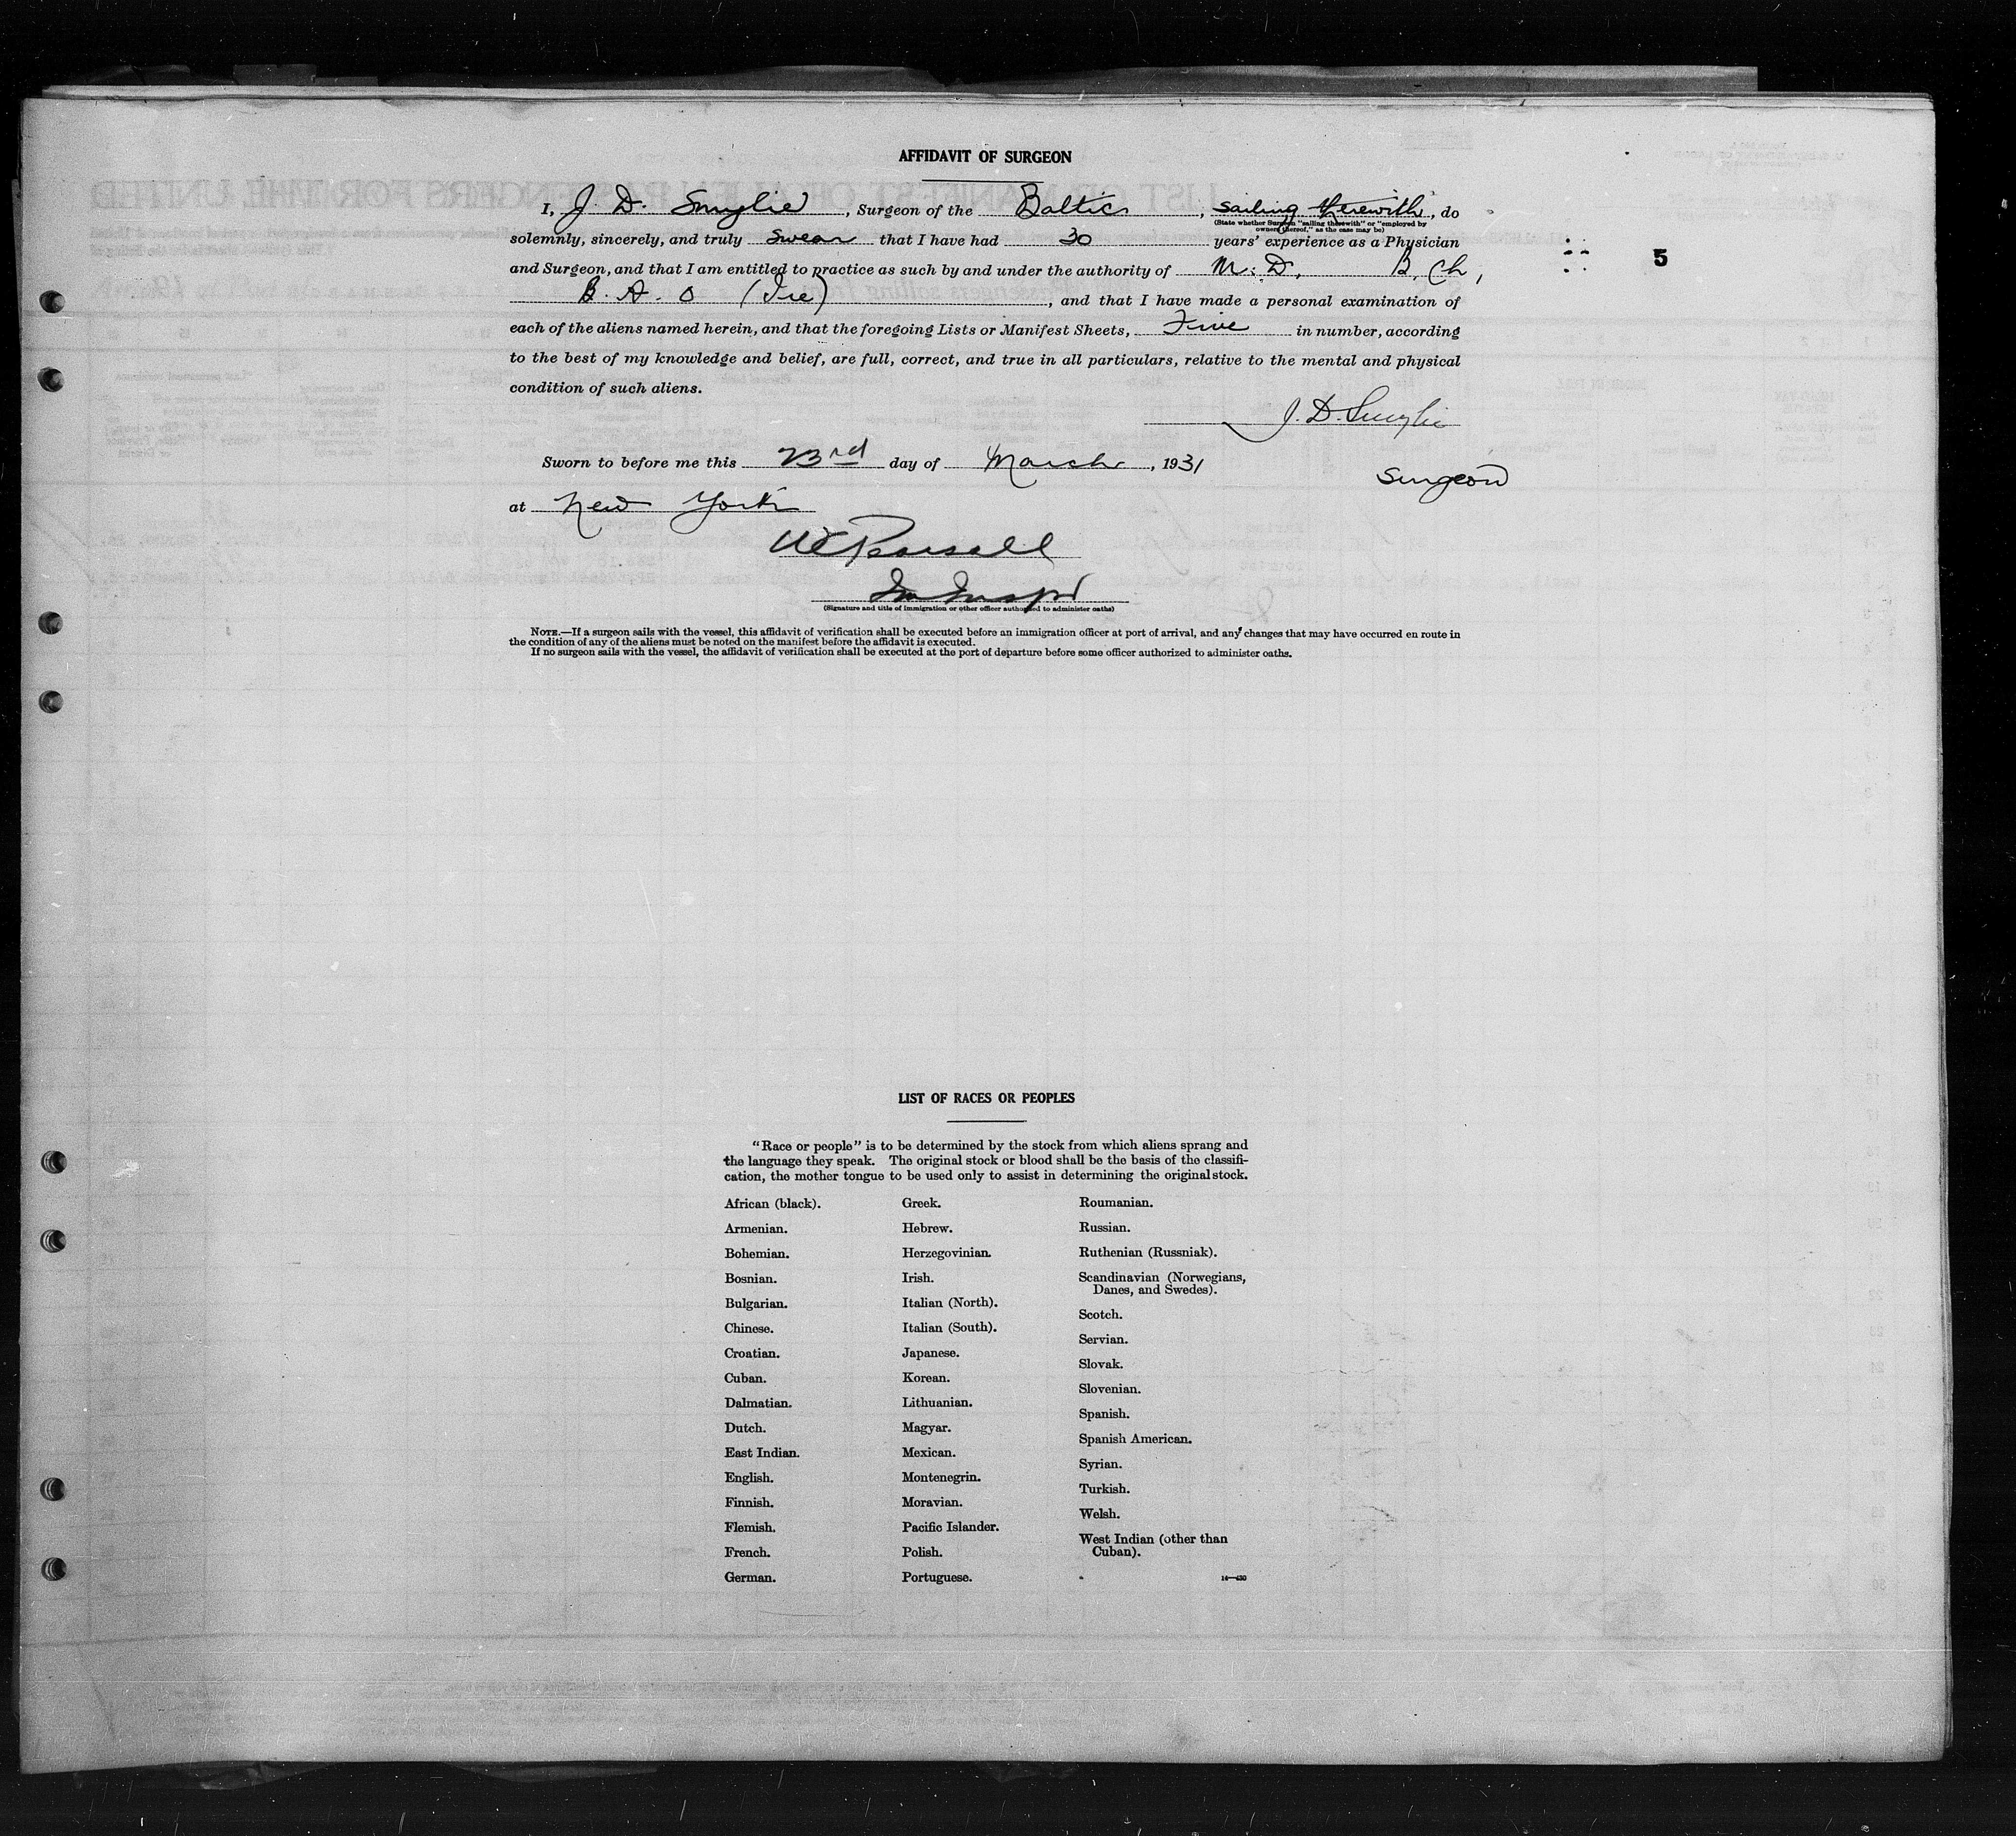 AFFIDAVIT OF SURGEON
I, J. D. Smylie, Surgeon of the Baltic, sailing therewith, do
(State whether Surgeon "sailing therewith" or "employed by
owners thereof," as the case may be)
solemnly, sincerely, and truly swear that I have had 30 years' experience as a Physician
and Surgeon, and that I am entitled to practice as such by and under the authority of M. D, B. Ch,
B. A. O (Ire), and that I have made a personal examination of
each of the aliens named herein, and that the foregoing Lists or Manifest Sheets, Five in number, according
to the best of my knowledge and belief, are full, correct, and true in all particulars, relative to the mental and physical
condition of such aliens.
J. D. Smylie
Sworn to before me this 23rd day of March, 1931
Surgeon
at New York
Pearsall
Im Inspr
(Signature and title of immigration or other officer authorized to administer oaths)
NOTE.—If a surgeon sails with the vessel, this affidavit of verification shall be executed before an immigration officer at port of arrival, and any changes that may have occurred en route in
the condition of any of the aliens must be noted on the manifest before the affidavit is executed.
If no surgeon sails with the vessel, the affidavit of verification shall be executed at the port of departure before some officer authorized to administer oaths.
5
LIST OF RACES OR PEOPLES
"Race or people" is to be determined by the stock from which aliens sprang and
the language they speak. The original stock or blood shall be the basis of the classifi-
cation, the mother tongue to be used only to assist in determining the original stock.
African (black).
Armenian.
Bohemian.
Bosnian.
Bulgarian.
Chinese.
Croatian.
Cuban.
Dalmatian.
Dutch.
East Indian.
English.
Finnish.
Flemish.
French.
German.
Greek.
Hebrew.
Herzegovinian.
Irish.
Italian (North).
Italian (South).
Japanese.
Korean.
Lithuanian.
Magyar.
Mexican.
Montenegrin.
Moravian.
Pacific Islander.
Polish.
Portuguese.
Roumanian.
Russian.
Ruthenian (Russniak).
Scandinavian (Norwegians,
Danes, and Swedes).
Scotch.
Servian.
Slovak.
Slovenian.
Spanish.
Spanish American.
Syrian.
Turkish.
Welsh.
West Indian (other than
Cuban).